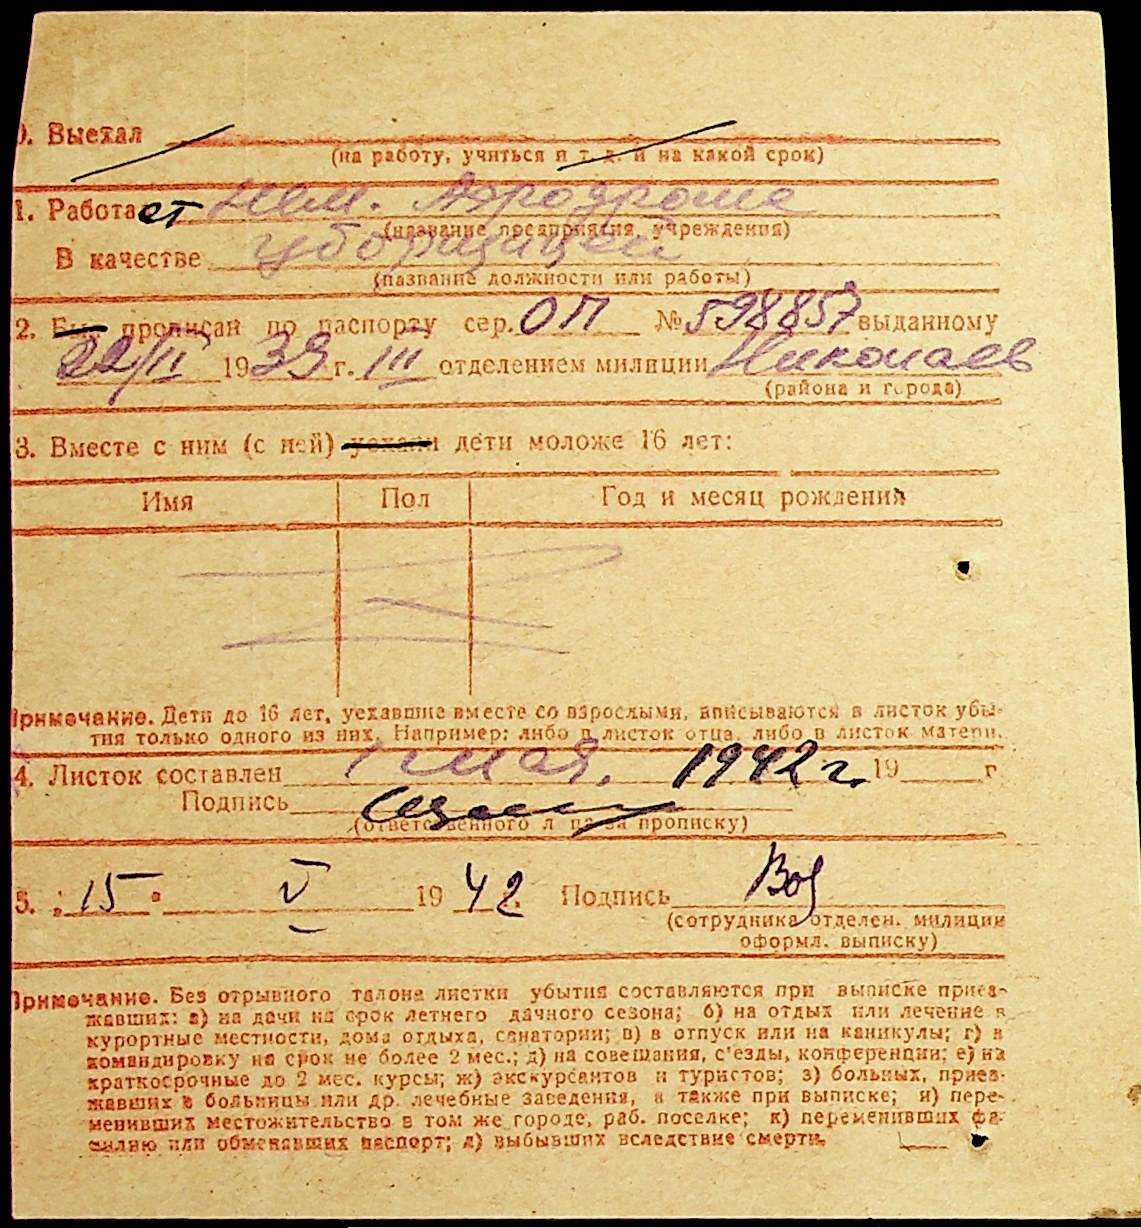 0. Выехал
(на работу, учиться и т. д. и на какой срок)
1. Работает Нем. Аэродроме
(название предприятия, учреждения)
В качестве уборщицей
(название должности или работы)
2. Был прописан по паспорту сер. ОП № 598857 выданному
22/II 1939 г. III отделением милиции Николаев
(района и города)
3. Вместе с ним (с ней) уехали дети моложе 16 лет:
Имя Пол Год и месяц рождений
Примечание. Дети до 16 лет, уехавшие вместе со взрослыми, вписываются в листок убы-
тия только одного из них. Например: либо в листок отца, либо в листок матери.
4. Листок составлен 1 мая. 1942 г. 19 г
Подпись
(ответственного л ца за прописку)
5. „15" V 1942 г. Подпись
(сотрудника отделен. милиции
оформл. выписку)
Примечание. Без отрывного талона листки убытия составляются при выписке приез-
жавших: а) на дачи на срок летнего дачного сезона; б) на отдых или лечение в
курортные местности, дома отдыха, санатории; в) в отпуск или на каникулы; г) в
командировку на срок не более 2 мес.; д) на совещания, с'езды, конференции; е) на
краткосрочные до 2 мес. курсы; ж) экскурсантов и туристов; з) больных, приез-
жавших в больницы или др. лечебные заведения, а также при выписке; и) пере-
менивших местожительство в том же городе, раб. поселке; к) переменивших фа-
милию или обменявших паспорт; л) выбывших вследствие смерти.